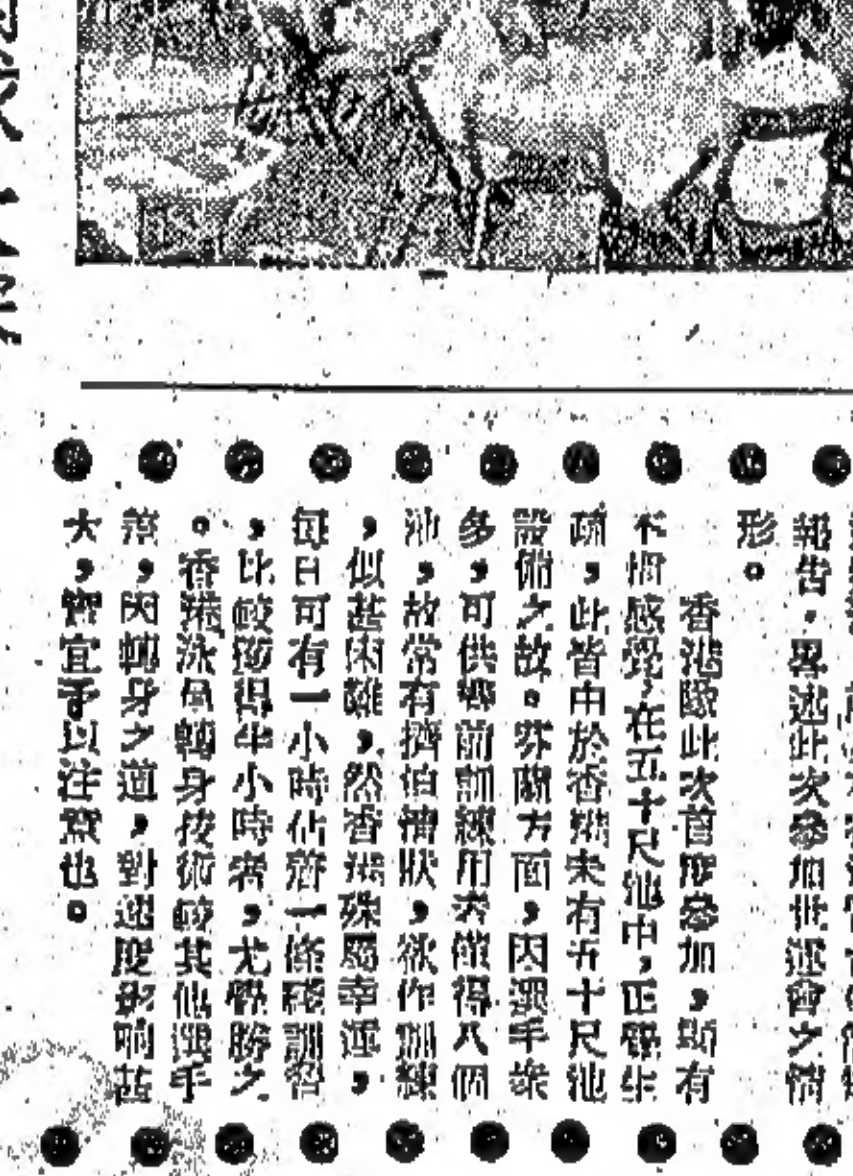 報告,畧述此次參加世運會之情
形。
香港隊此次首度參加,頗有
不慣感覺,在五十尺池中,正覺生
疏,此皆由於香港未有五十尺池
設備之故。芬蘭方面,因選手眾
多,可供賽前訓練用者僅得八個
池,故常有擠怕情狀,欲作訓練
,似甚困難,然香港殊屬幸運,
每日可有一小時佔著一條綫訓習
,比較獲得半小時者,尤覺勝之
。香港泳員轉身技術較其他選手
差,因轉身之道,對速度影响甚
大,實宜予以注意也。